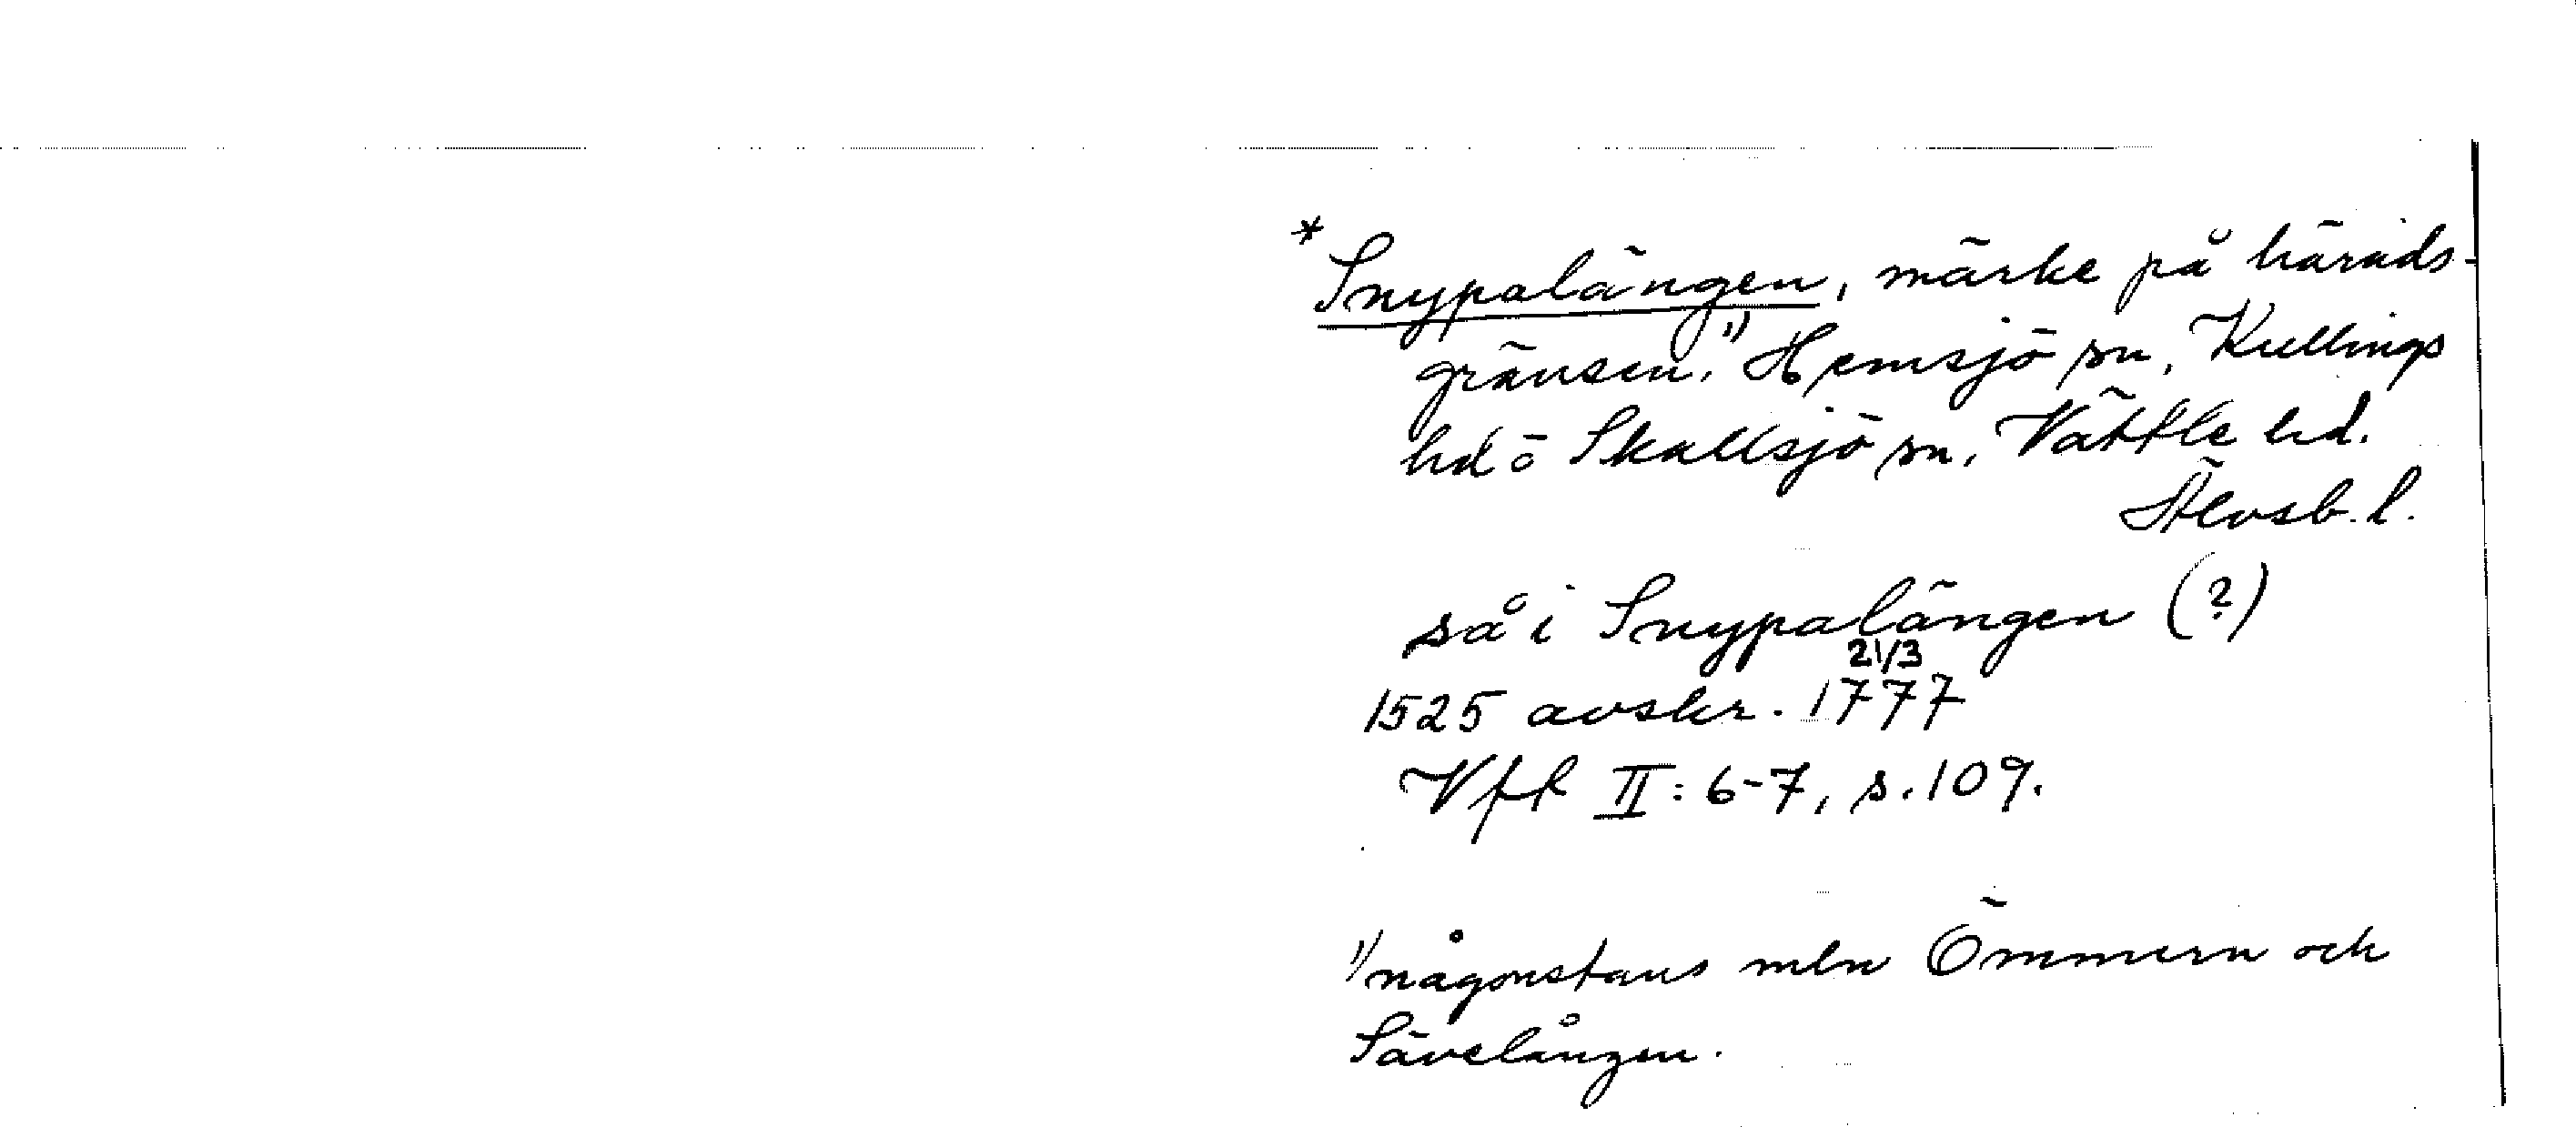 * Snypalängen, märke på härads-
gränsen,¹⁾ Hemsjö sn, Kullings
hd o Skallsjö sn, Vättle hd.
Älvsb. l.
så i Snypalängen (?)
21/3
1525 avskr. 1777
Vff II: 6-7, s. 109.
¹⁾ någonstans mln Ömmern och
Sävelången.